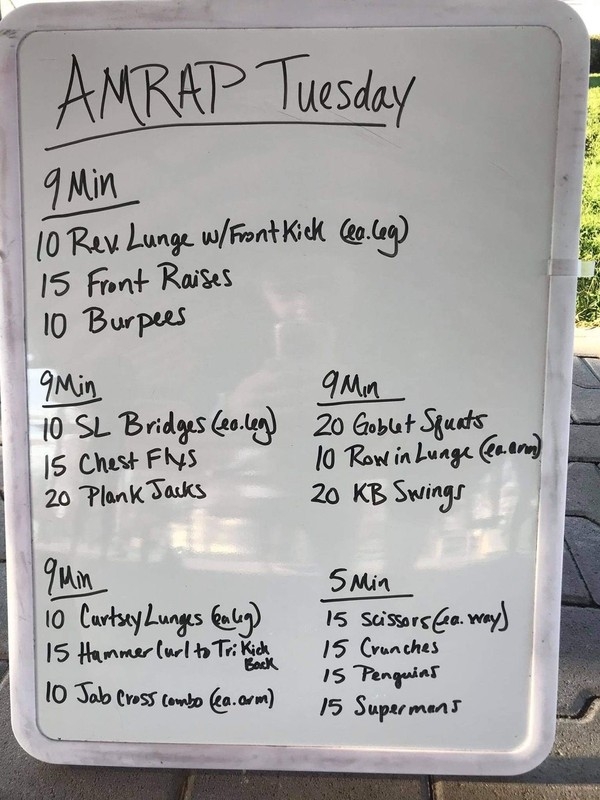 AMRAP Tuesday
9 Min
10 Rev. Lunge w/Front Kick (ea.leg)
15 Front Raises
10 Burpees
9 Min
10 SL Bridges (ea.leg)
15 Chest Flys
20 Plank Jacks
9 Min
20 Goblet Squats
10 Row in Lunge (ea.arm)
20 KB Swings
9 Min
10 Curtsey Lunges (ea leg)
15 Hammer Curl to Tri Kick
Back
10 Jab Cross combo (ea.arm)
5 Min
15 Scissors (ea. way)
15 Crunches
15 Penguins
15 Supermans